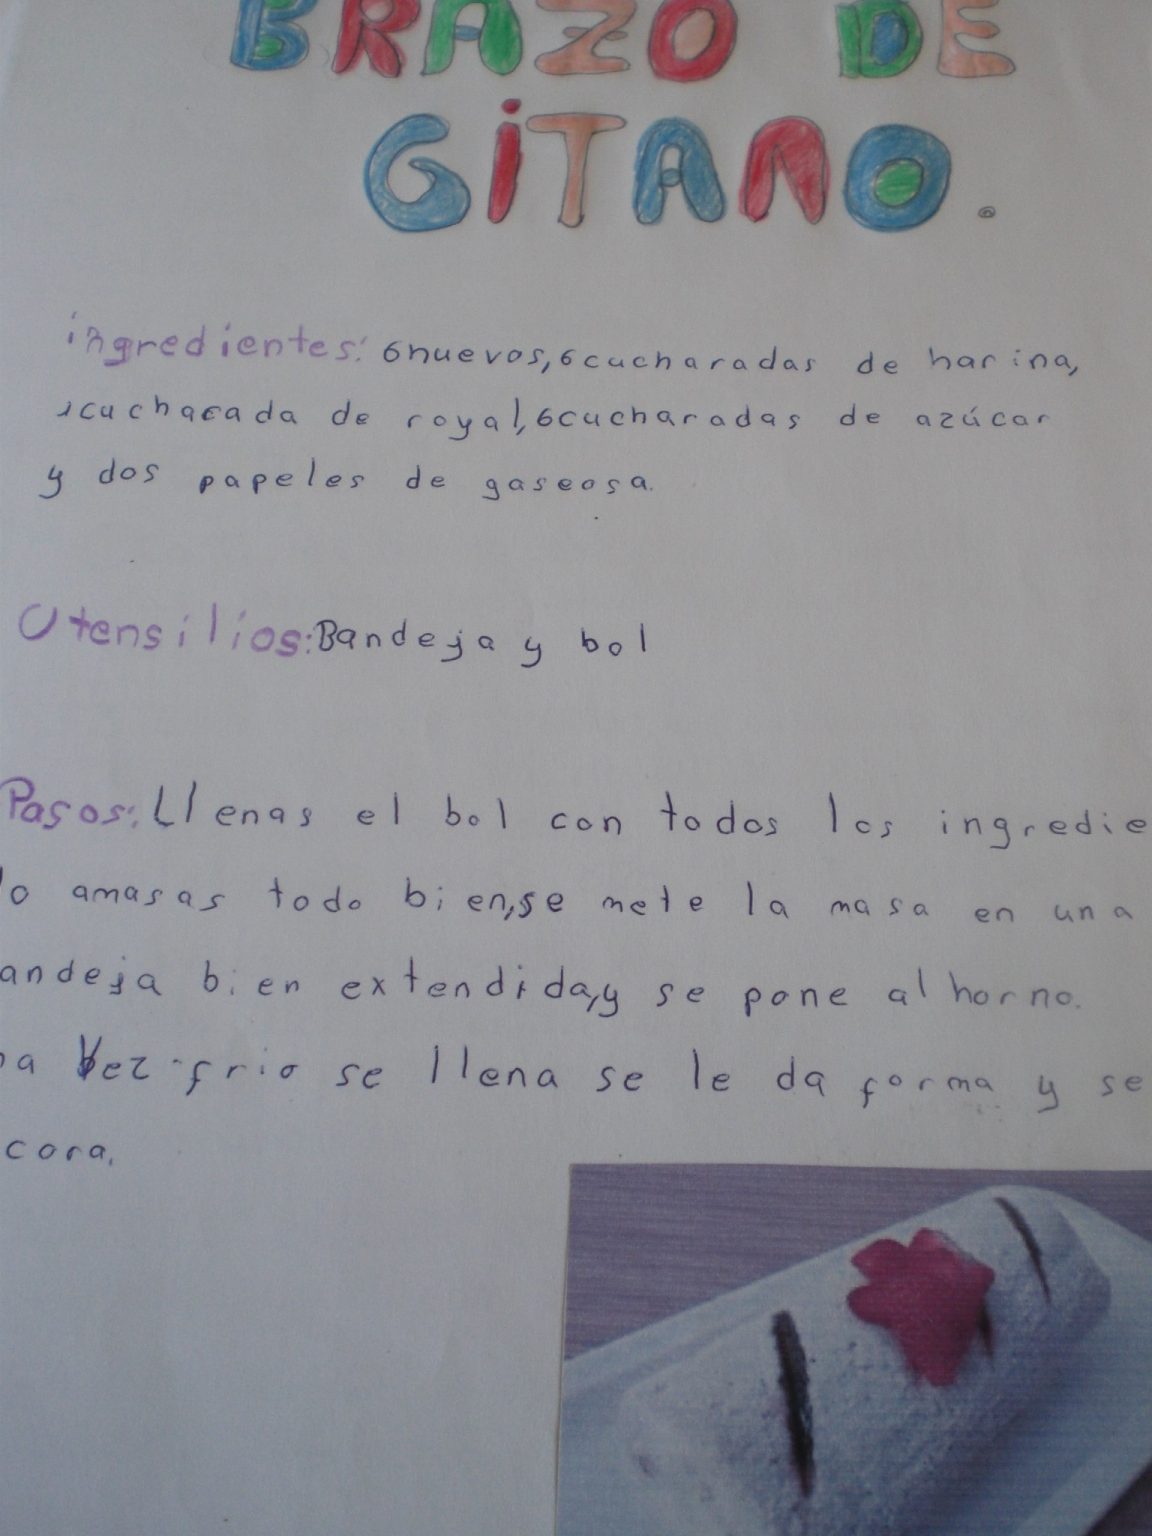 BRAZO DE
GITANO.
ingredientes: 6 huevos, 6 cucharadas de harina,
1 cucharada de royal, 6 cucharadas de azúcar
y dos papeles de gaseosa.
Utensilios: Bandeja y bol
Pasos: Llenas el bol con todos los ingredie
lo amasas todo bien, se mete la masa en una
andeja bien extendida, y se pone al horno.
a vez frio se llena se le da forma y se
cora.